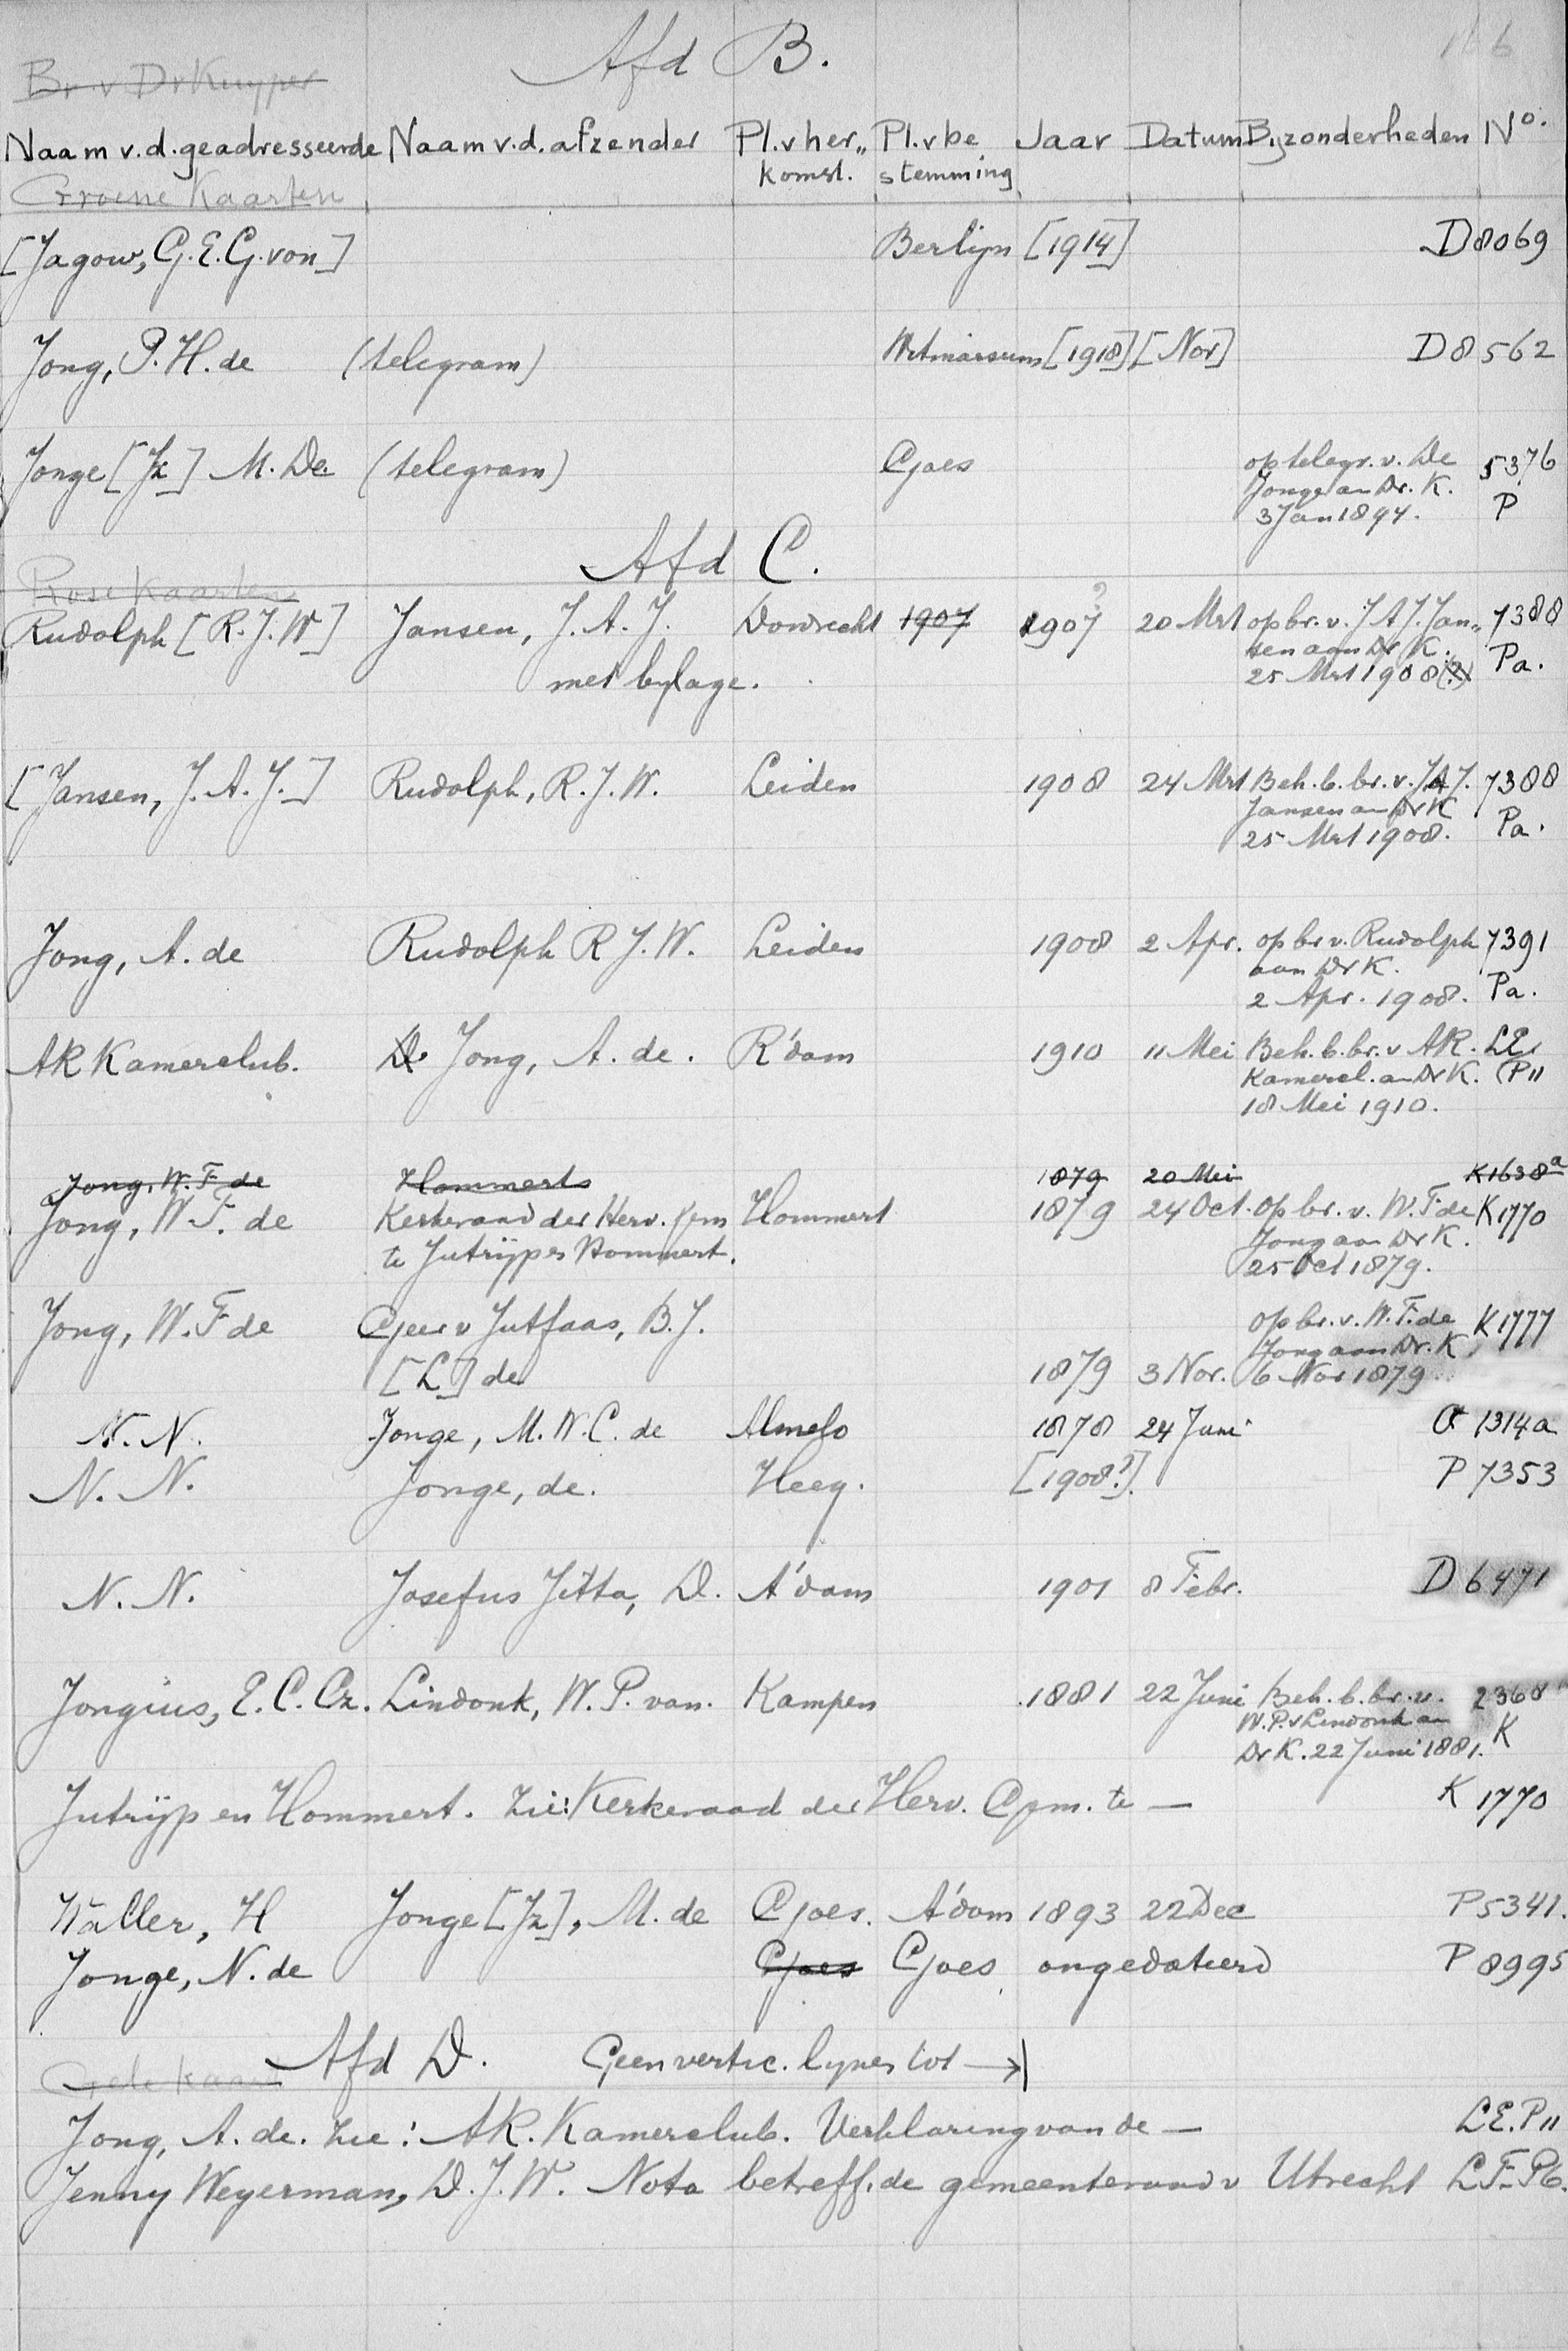 Afd B.
166
Br. v Dr Kuyper
Naam v.d. geadresseerde Naam v.d. afzender Pl. v her„ Pl. v be Jaar Datum Byzonderheden No.
komst. stemming
Groene Kaarten
[Jagow, G. E. G. von] Berlijn [1914] D 8069
Jong, P. H. de (telegram) Witmarsum [1918] [Nov] D 8562
Jonge [Jz] M. De (telegram) Goes op telegr. v. De 5376
Jonge an Dr. K. P
3 Jan 1894.
Afd C.
Rose Kaarten
Rudolph [R. J. W] Jansen, J. A. J. Dordrecht 1907 1907? 20 Mrt op br. v. J A J. Jan„ 7388
sen aan Dr K. Pa.
met bylage. 25 Mrt 1908 (?)
[Jansen, J. A. J.] Rudolph, R. J. W. Leiden 1908 24 Mrt Beh. b. br. v. J A J. 7388
Jansen an Dr K Pa.
25 Mrt 1908.
Jong, A. de Rudolph R J. W. Leiden 1908 2 Apr. op br v. Rudolph 7391
aan Dr K. Pa.
2 Apr. 1908.
AR Kamerclub. D. Jong, A. de. R'dam 1910 11 Mei Beh. b. br. v AR. LE.
Kamercl. an Dr K. P11
18 Mei 1910.
Jong, W. F. de Hommerts 1879 20 Mei K1638a
Jong, W. F. de Kerkeraad der Herv. Gem Hommert 1879 24 Oct. op br. v. W. F. de K1770
te Jutrijp en Hommert. Jong aan Dr K.
25 Oct 1879.
Jong, W. F de Geer v Jutfaas, B. J. op br. v. W. F. de K1777
Jong aan Dr. K,
[L] de 1879 3 Nov. 6 Nov 1879
N. N. Jonge, M. W. C. de Almelo 1878 24 Juni 1314a
N. N. Jonge, de. Heeg. [1908?]. P 7353
N. N. Josefus Jitta, D. A'dam 1901 8 Febr. D 6471
Jongius, E. C. Cz. Lindonk, W. P. van. Kampen 1881 22 Juni Beh. b. br. v. 2368
W. P. v Lindonk an K
Dr K. 22 Juni 1881.
Jutrijp en Hommert. Zie: Kerkeraad der Herv. Gem. te — K 1770
Waller, H Jonge [Jz], M. de Goes. A'dam 1893 22 Dec P5341.
Jonge, N. de Goes Goes ongedateerd P 8995
Afd D. Geen vertic. lynen tot →|
Gele kaart
Jong, A. de. Zie: AR. Kamerclub. Verklaring van de — LE. P11
Jenny Weyerman, D. J. W. Nota betreff. de gemeenteraad v Utrecht L F. P6.